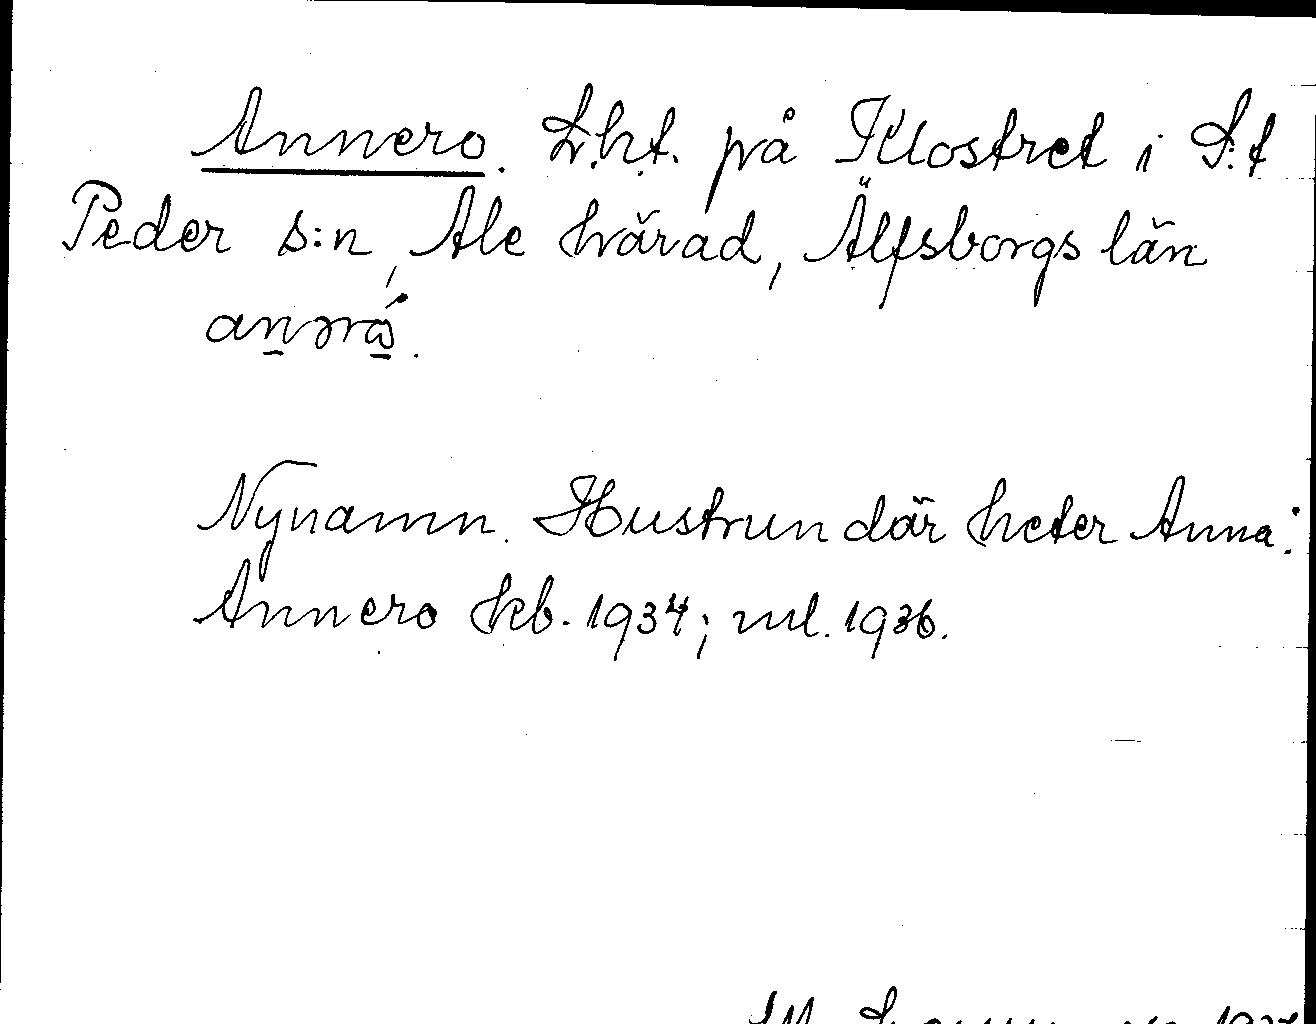 Annero. L.ht. på Klostret i S:t
Peder s:n, Ale härad, Älfsborgs län
Nynamn. Hustrun där heter Anna:
Annero kb. 1934; ml. 1936.